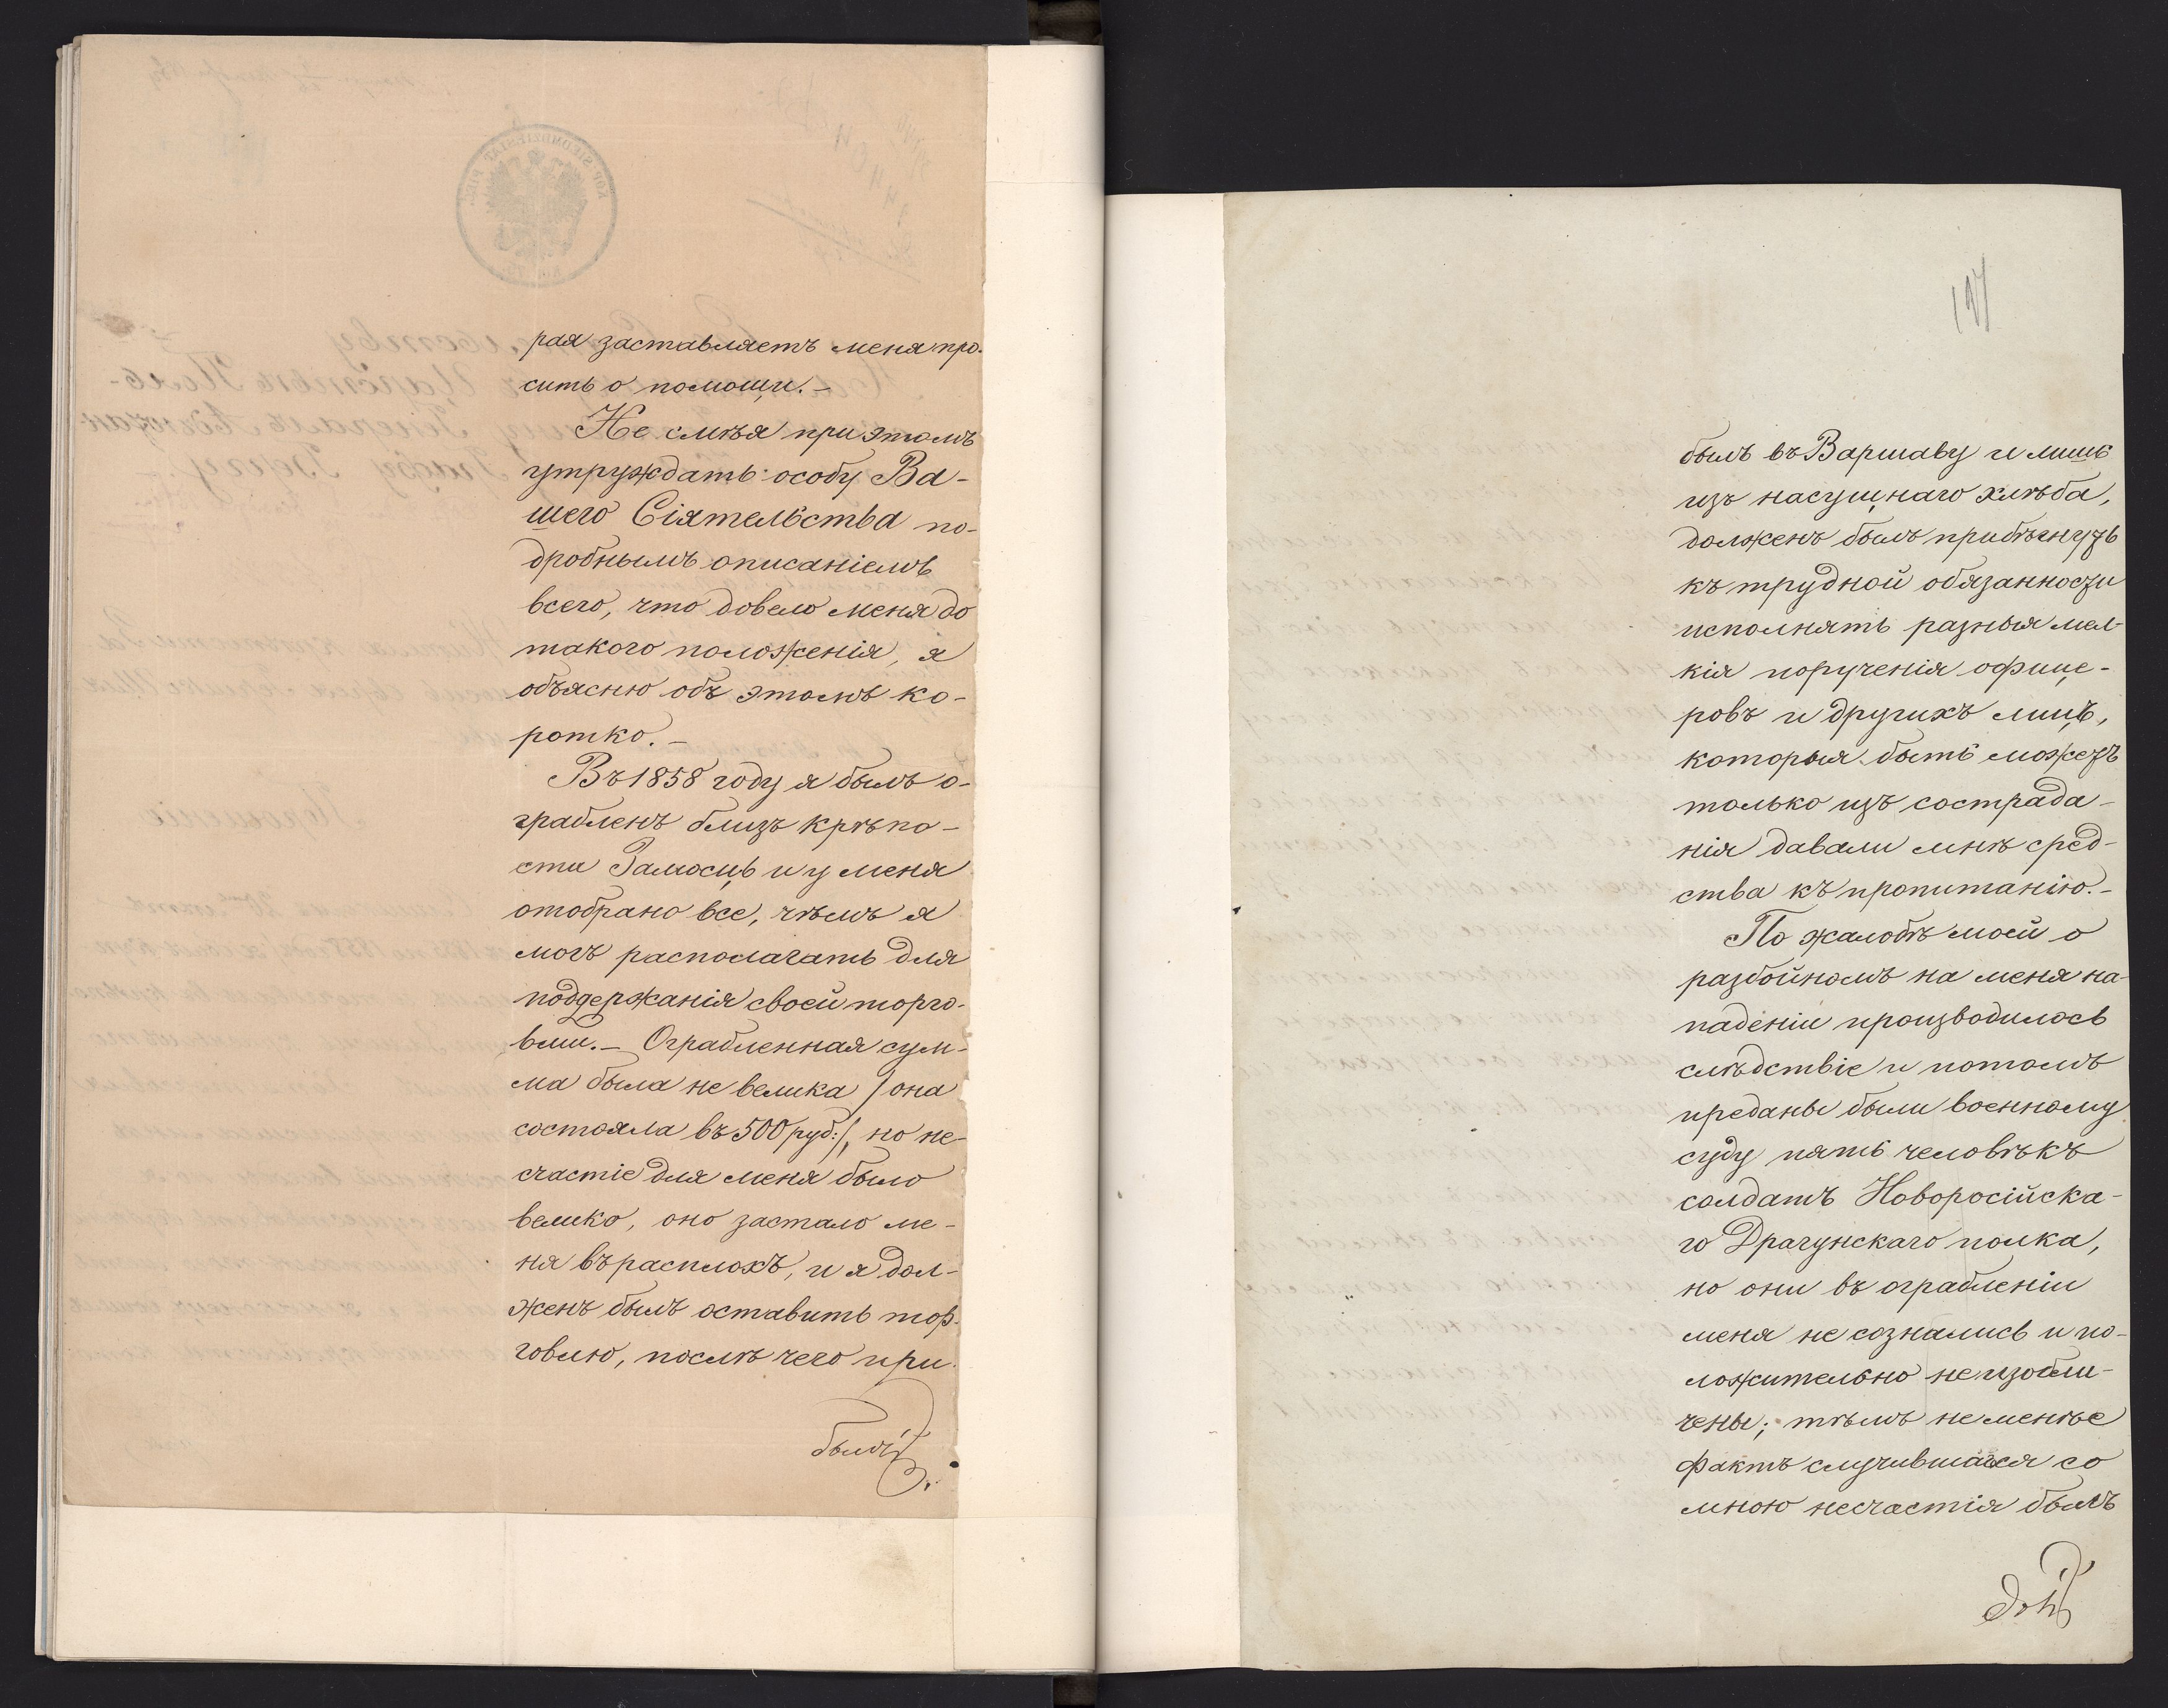 рая заставляетъ меня про-
сить о помощи.-
Не смѣя при этомъ
утруждать особу Ва-
шего Сіятельства по-
дробнымъ описаніемъ
всего, что довело меня до
такого положенія, я
объясню объ этомъ ко-
ротко.-
Въ 1858 году я былъ о-
грабленъ близъ крѣпо-
сти Замосць и у меня
отобрано все, чѣмъ я
могъ располагать для
поддержанія своей торго-
вли.- Ограбленная сум-
ма была не велика /она
состояла въ 500 руб:/, но не-
счастіе для меня было
велико, оно застало ме-
ня въ расплохъ, и я дол-
женъ былъ оставить тор-
говлю, послѣ чего при-
былъ
былъ въ Варшаву и лишь
изъ насущнаго хлѣба,
долженъ былъ прибѣгнуть
къ трудной обязанности
исполнять разныя мел-
кія порученія офице-
ровъ и другихъ лицъ,
которыя быть можетъ
только изъ сострада-
нія давали мнѣ сред-
ства къ пропитанію.-
По жалобѣ моей о
разбойномъ на меня на-
паденіи производилось
слѣдствіе и потомъ
преданы были военному
суду пять человѣкъ
солдатъ Новоросійска-
го Драгунскаго полка,
но они въ ограбленіи
меня не сознались и по-
ложительно не изобли-
чены; тѣмъ не менѣе
фактъ случившагося со
мною несчастія былъ